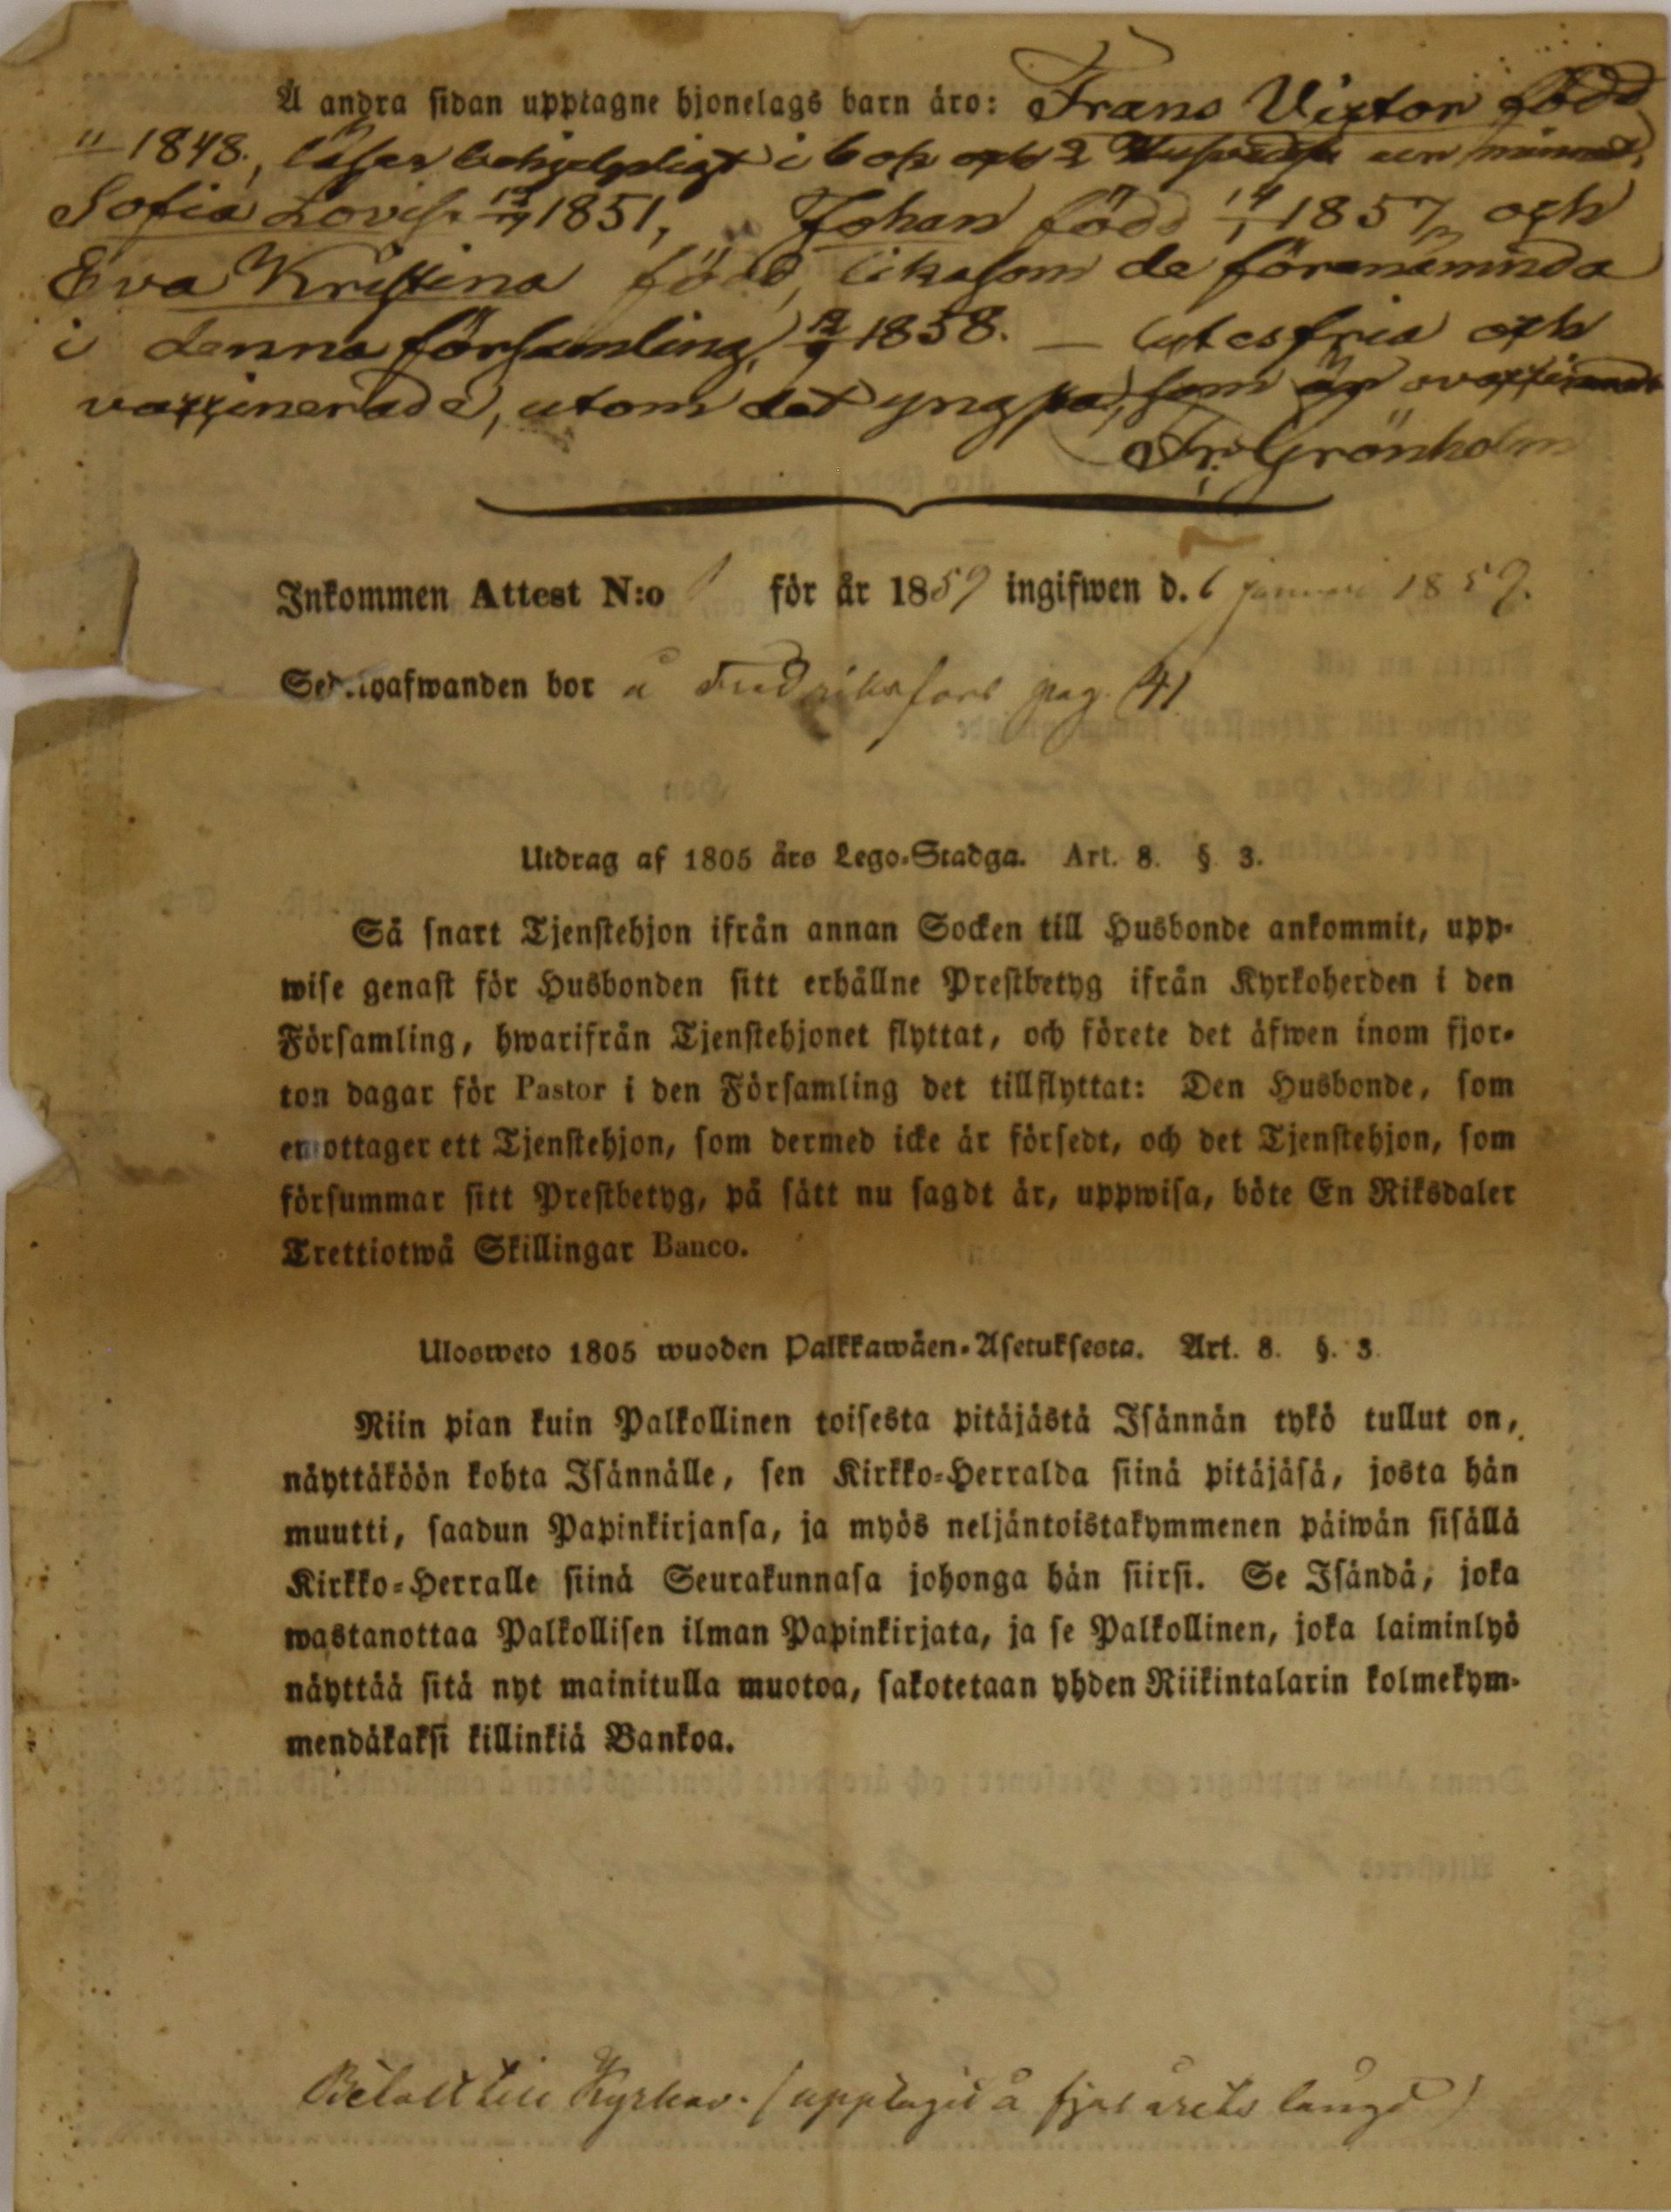 Å andra sidan upptagne hjonelags barn äro: Frans Victor född
1848, läser behjelpligt i bok och 2 ur minnet,
Sofia Lovisa 1851, Johan född 14/1 1857, och
Eva Kristina född, likasom de förenämnda
i denna församling, 1858. — lytesfria och
vaccinerade, utom det yngsta, som är ovaccineradt
Fr. Grönholm
Inkommen Attest N:o 1 för år 1859 ingifwen d. 6 januari 1859.
bor å Fredriksfors pag. 41
Utdrag af 1805 års Lego-Stadga. Art. 8. §. 3.
Så snart Tjenstehjon ifrån annan Socken till Husbonde ankommit, upp-
wise genast för Husbonden sitt erhållne Prestbetyg ifrån Kyrkoherden i den
Församling, hwarifrån Tjenstehjonet flyttat, och förete det äfwen inom fjor-
ton dagar för Pastor i den Församling det tillflyttat: Den Husbonde, som
emottager ett Tjenstehjon, som dermed icke är försedt, och det Tjenstehjon, som
försummar sitt Prestbetyg, på sätt nu sagdt är, uppwisa, böte En Riksdaler
Trettiotwå Skillingar Banco.
Ulosweto 1805 wuoden Palkkawäen-Asetuksesta. Art. 8. §. 3.
Niin pian kuin Palkollinen toisesta pitäjästä Isännän tykö tullut on,
näyttäköön kohta Isännälle, sen Kirkko-Herralda siinä pitäjäsä, josta hän
muutti, saadun Papinkirjansa, ja myös neljäntoistakymmenen päiwän sisällä
Kirkko-Herralle siinä Seurakunnasa johonga hän siirsi. Se Isändä, joka
wastanottaa Palkollisen ilman Papinkirjata, ja se Palkollinen, joka laiminlyö
näyttää sitä nyt mainitulla muotoa, sakotetaan yhden Riikintalarin kolmekym-
mendäkaksi killinkiä Bankoa.
Betalt till Kyrkan. (upptagit å fjol årets längd)